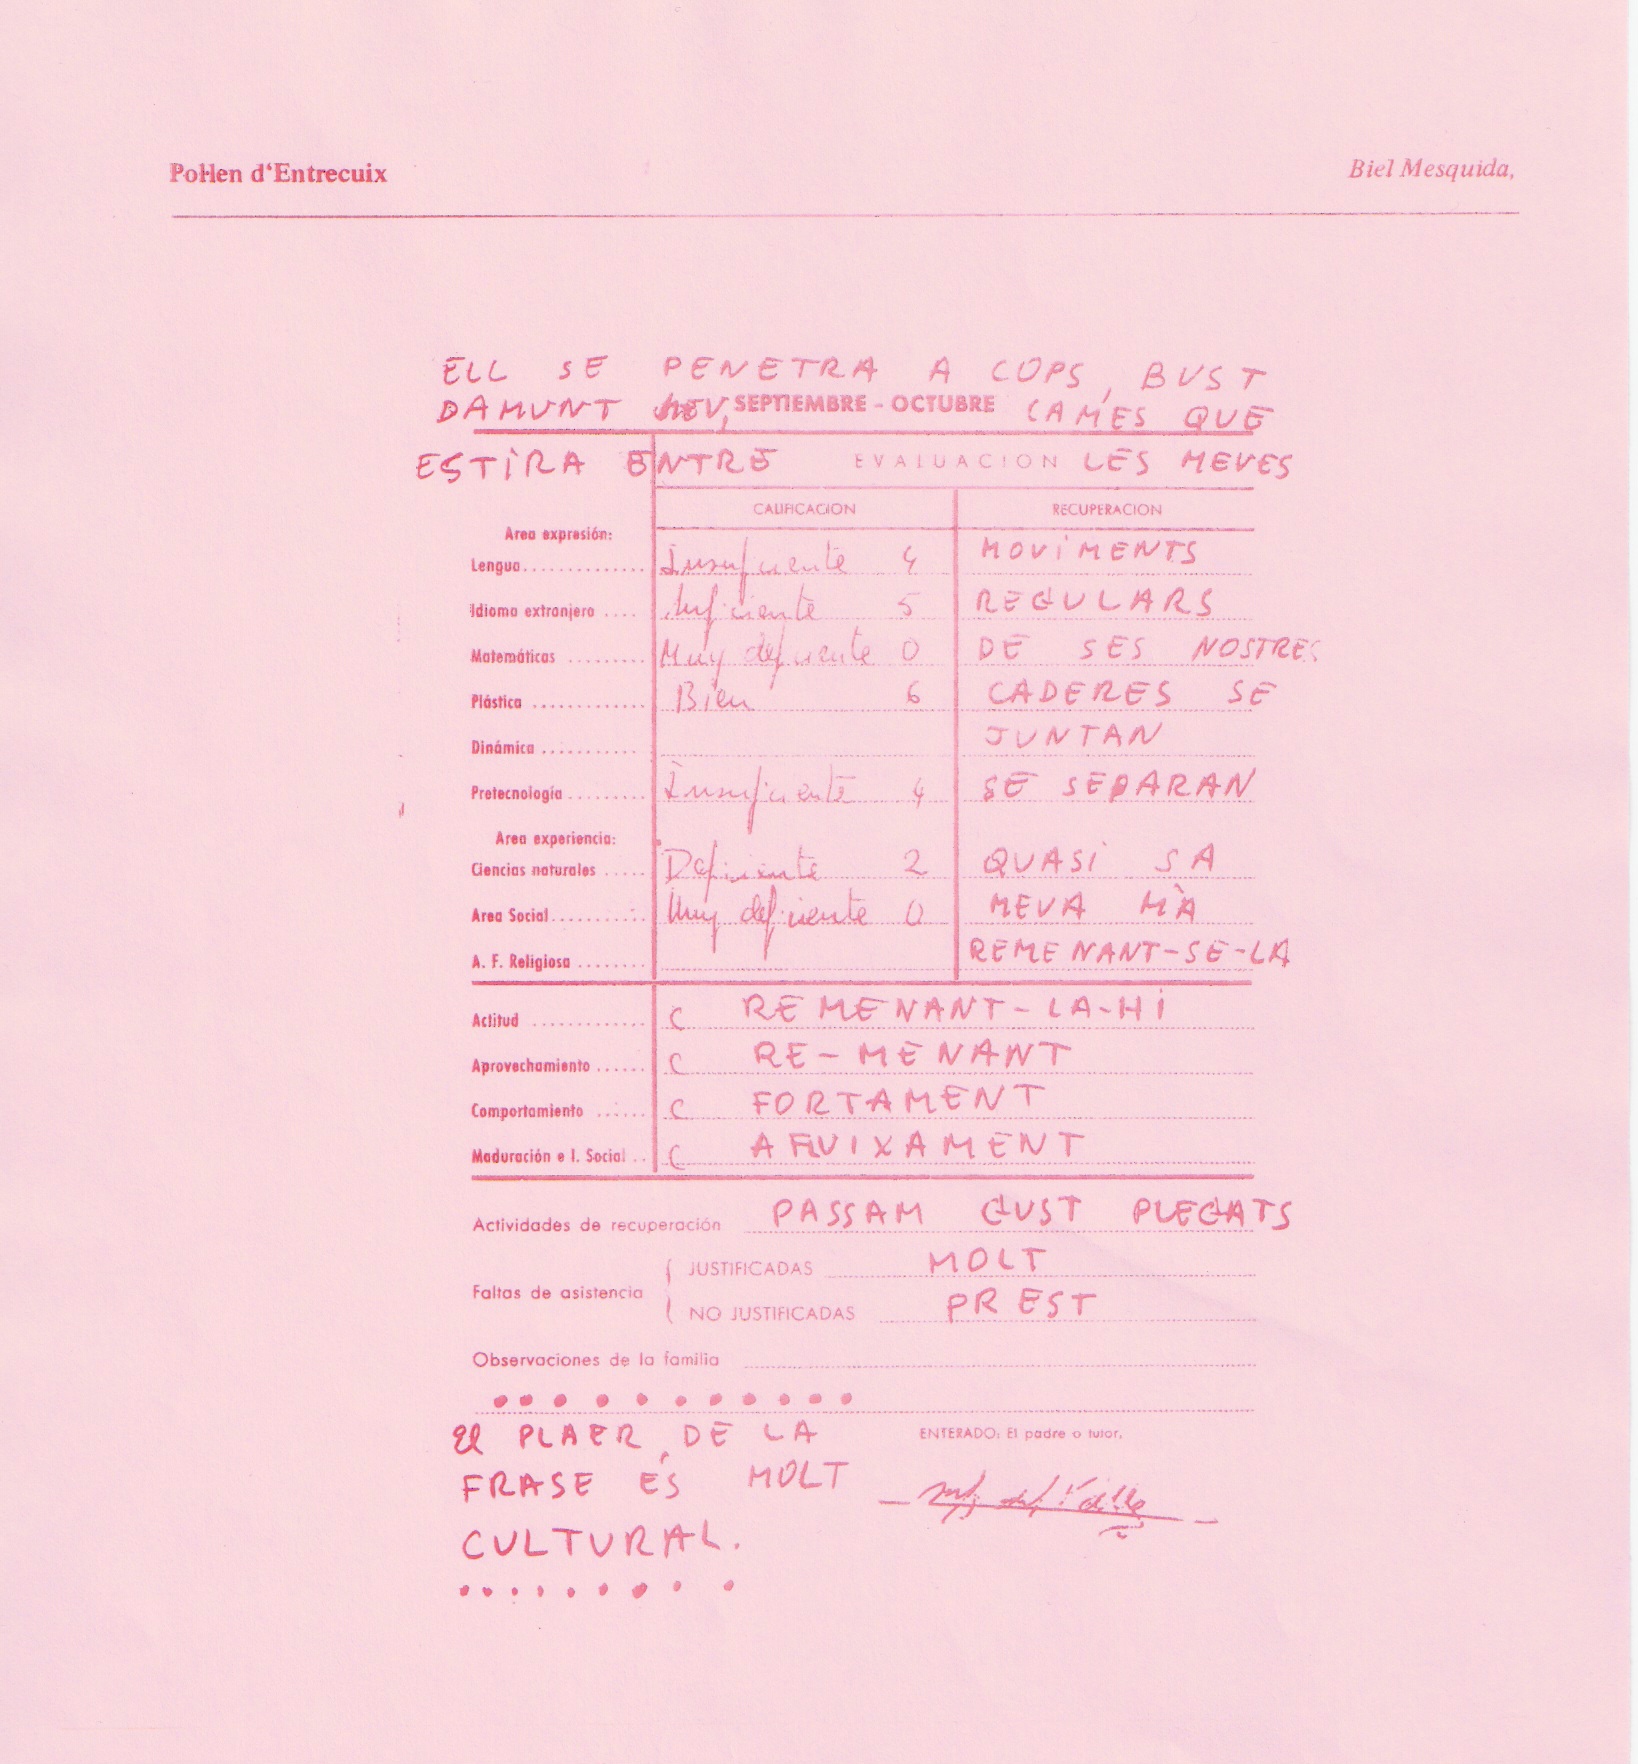 Pol·len d'Entrecuix Biel Mesquida,
ELL SE PENETRA A COPS, BUST
DAMUNT MEU, SEPTIEMBRE - OCTUBRE CAMES QUE
ESTIRA ENTRE EVALUACION LES MEVES
CALIFICACION RECUPERACION
Area expresión:
Lengua.............. Insuficiente 4 MOVIMENTS
Idioma extranjero .... Suficiente 5 REGULARS
Matemáticas ......... Muy deficiente 0 DE SES NOSTRES
Plástica ............. Bien 6 CADERES SE
Dinámica ........... JUNTAN
Pretecnología ......... Insuficiente 4 SE SEPARAN
Area experiencia:
Ciencias naturales ..... Deficiente 2 QUASI SA
Area Social........... Muy deficiente 0 MEVA MÀ
A. F. Religiosa ........ REMENANT-SE-LA
Actitud ............. C REMENANT-LA-HI
Aprovechamiento ...... C RE-MENANT
Comportamiento ...... C FORTAMENT
Maduración e I. Social .. C AFLUIXAMENT
Actividades de recuperación PASSAM GUST PLEGATS
JUSTIFICADAS MOLT
Faltas de asistencia
NO JUSTIFICADAS PREST
Observaciones de la familia
El PLAER DE LA ENTERADO: El padre o tutor,
FRASE ÉS MOLT
CULTURAL.